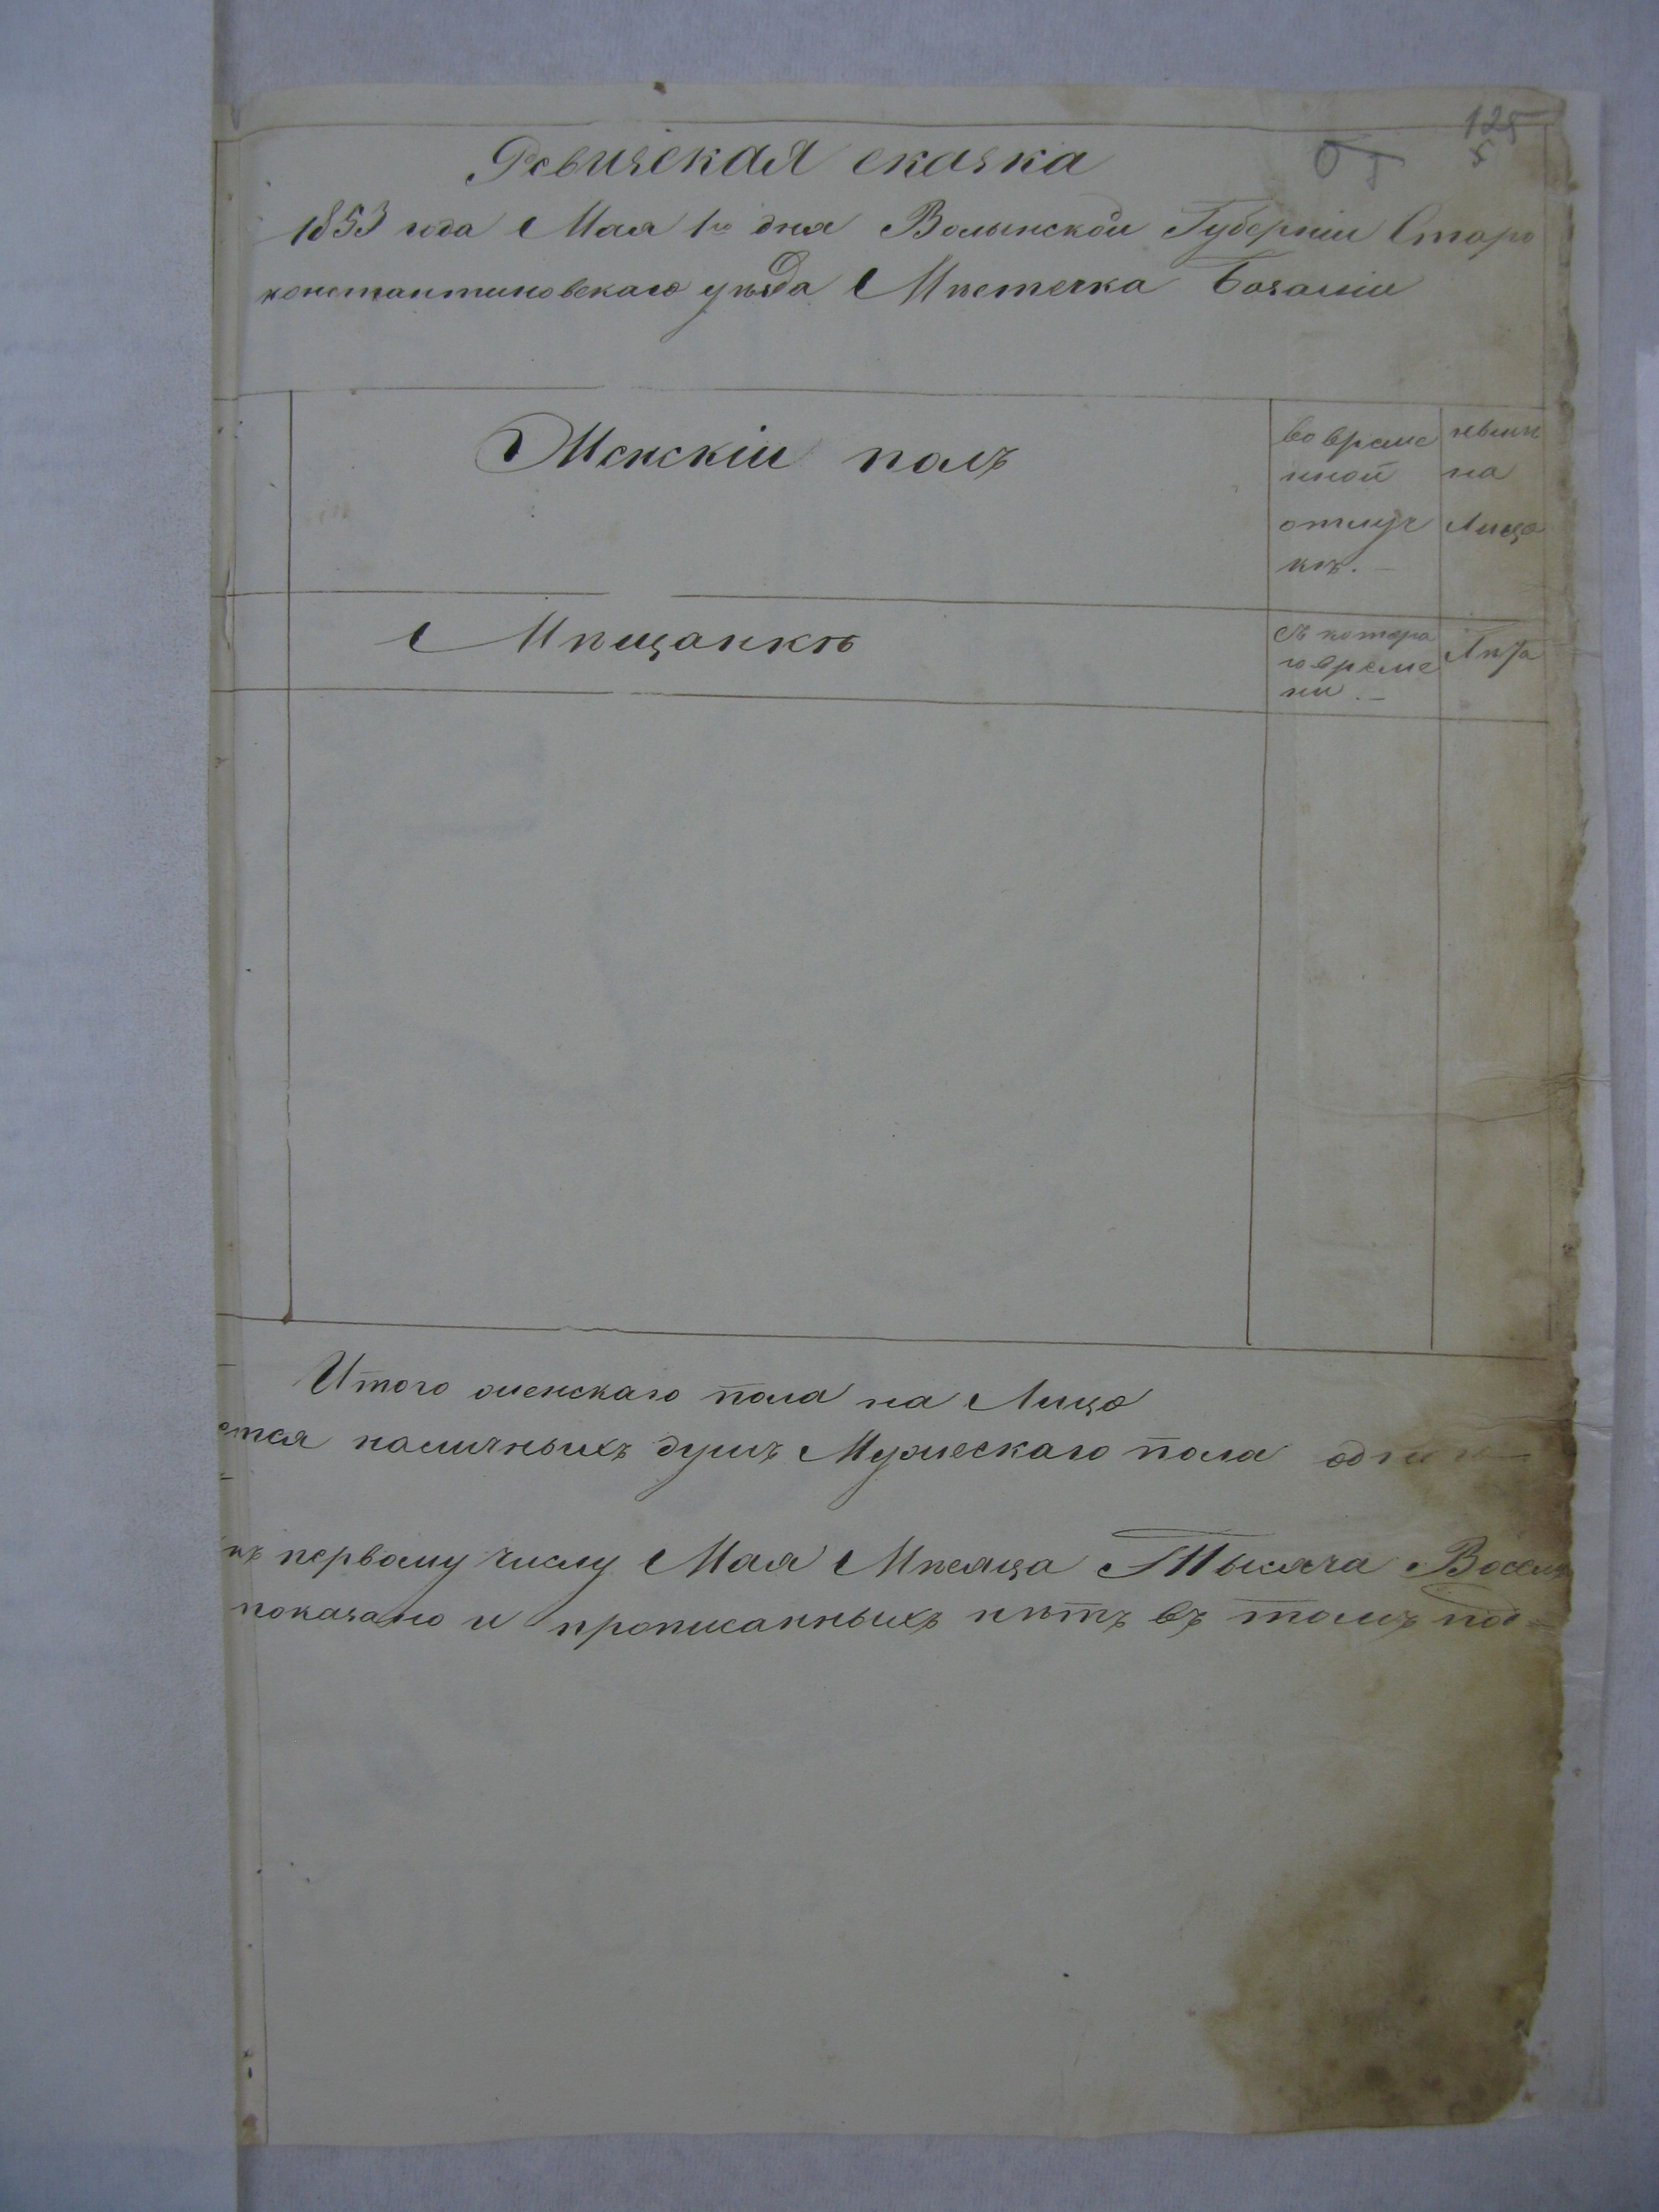 125
5
Ревизская сказка
1853 года Мая 1го дня Волынской Губерніи Старо
константиновскаго уѣзда Мѣстечка Базаліи
Женскій полъ
во време
нной
отлуч
кѣ. –
нынѣ
на
Лицо
Мѣщанкѣ
Съ котора
го време
ни. –
Лѣта
Итого женскаго пола на Лицо
ется наличныхъ душъ Мужескаго пола одна
къ первому числу Мая Мѣсяца Тысяча Восем
показано и прописанныхъ нѣтъ въ томъ под=